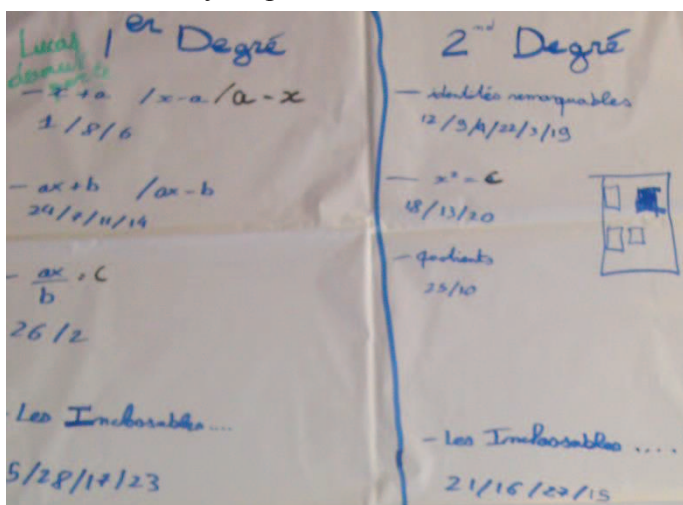 1er Degré
Lucas
- x+a /x-a/a-x
1/8/6
- ax+b /ax-b
24/7/11/14
- ax/b = C
26/2
- Les Inclassables....
5/28/17/23
2nd Degré
- identités remarquables
12/9/4/22/3/19
- x² = C
18/13/20
- quotients
25/10
- Les Inclassables ....
21/16/27/15